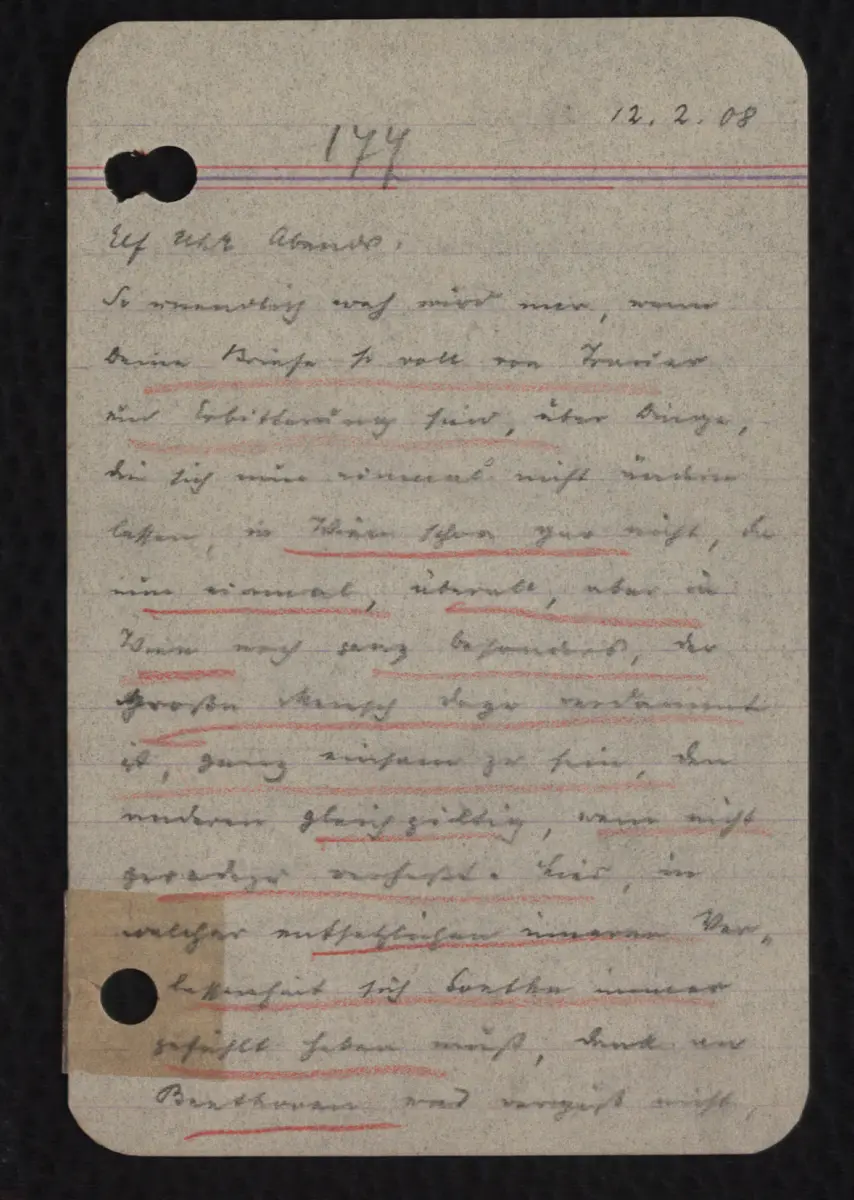 12. 2. 08
177
Elf Uhr Abends.
So unendlich weh wird mir, wenn
Deine Briefe so voll von Trauer
und Erbitterung sind, über Dinge,
die sich nun einmal nicht ändern
lassen, in Wien schon gar nicht, da
nun einmal, überall, aber in
Wien noch ganz besonders, der
große Mensch dazu verdammt
ist, ganz einsam zu sein, den
anderen gleichgiltig, wenn nicht
geradezu verhaßt. Lies, in
welcher entsetzlichen inneren Ver-
lassenheit sich Goethe immer
gefühlt haben muß, denk an
Beethoven und vergiß nicht,